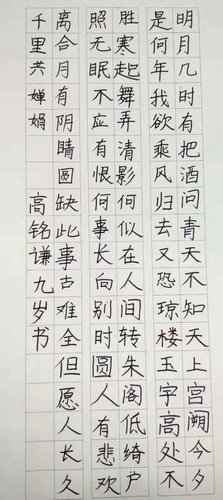 明月几时有把酒问青天不知天上宫阙今夕
是何年我欲乘风归去又恐琼楼玉宇高处不
胜寒起舞弄清影何似在人间转朱阁低绮户
照无眠不应有恨何事长向别时圆人有悲欢
离合月有阴晴圆缺此事古难全但愿人长久
千里共婵娟 高铭谦九岁书